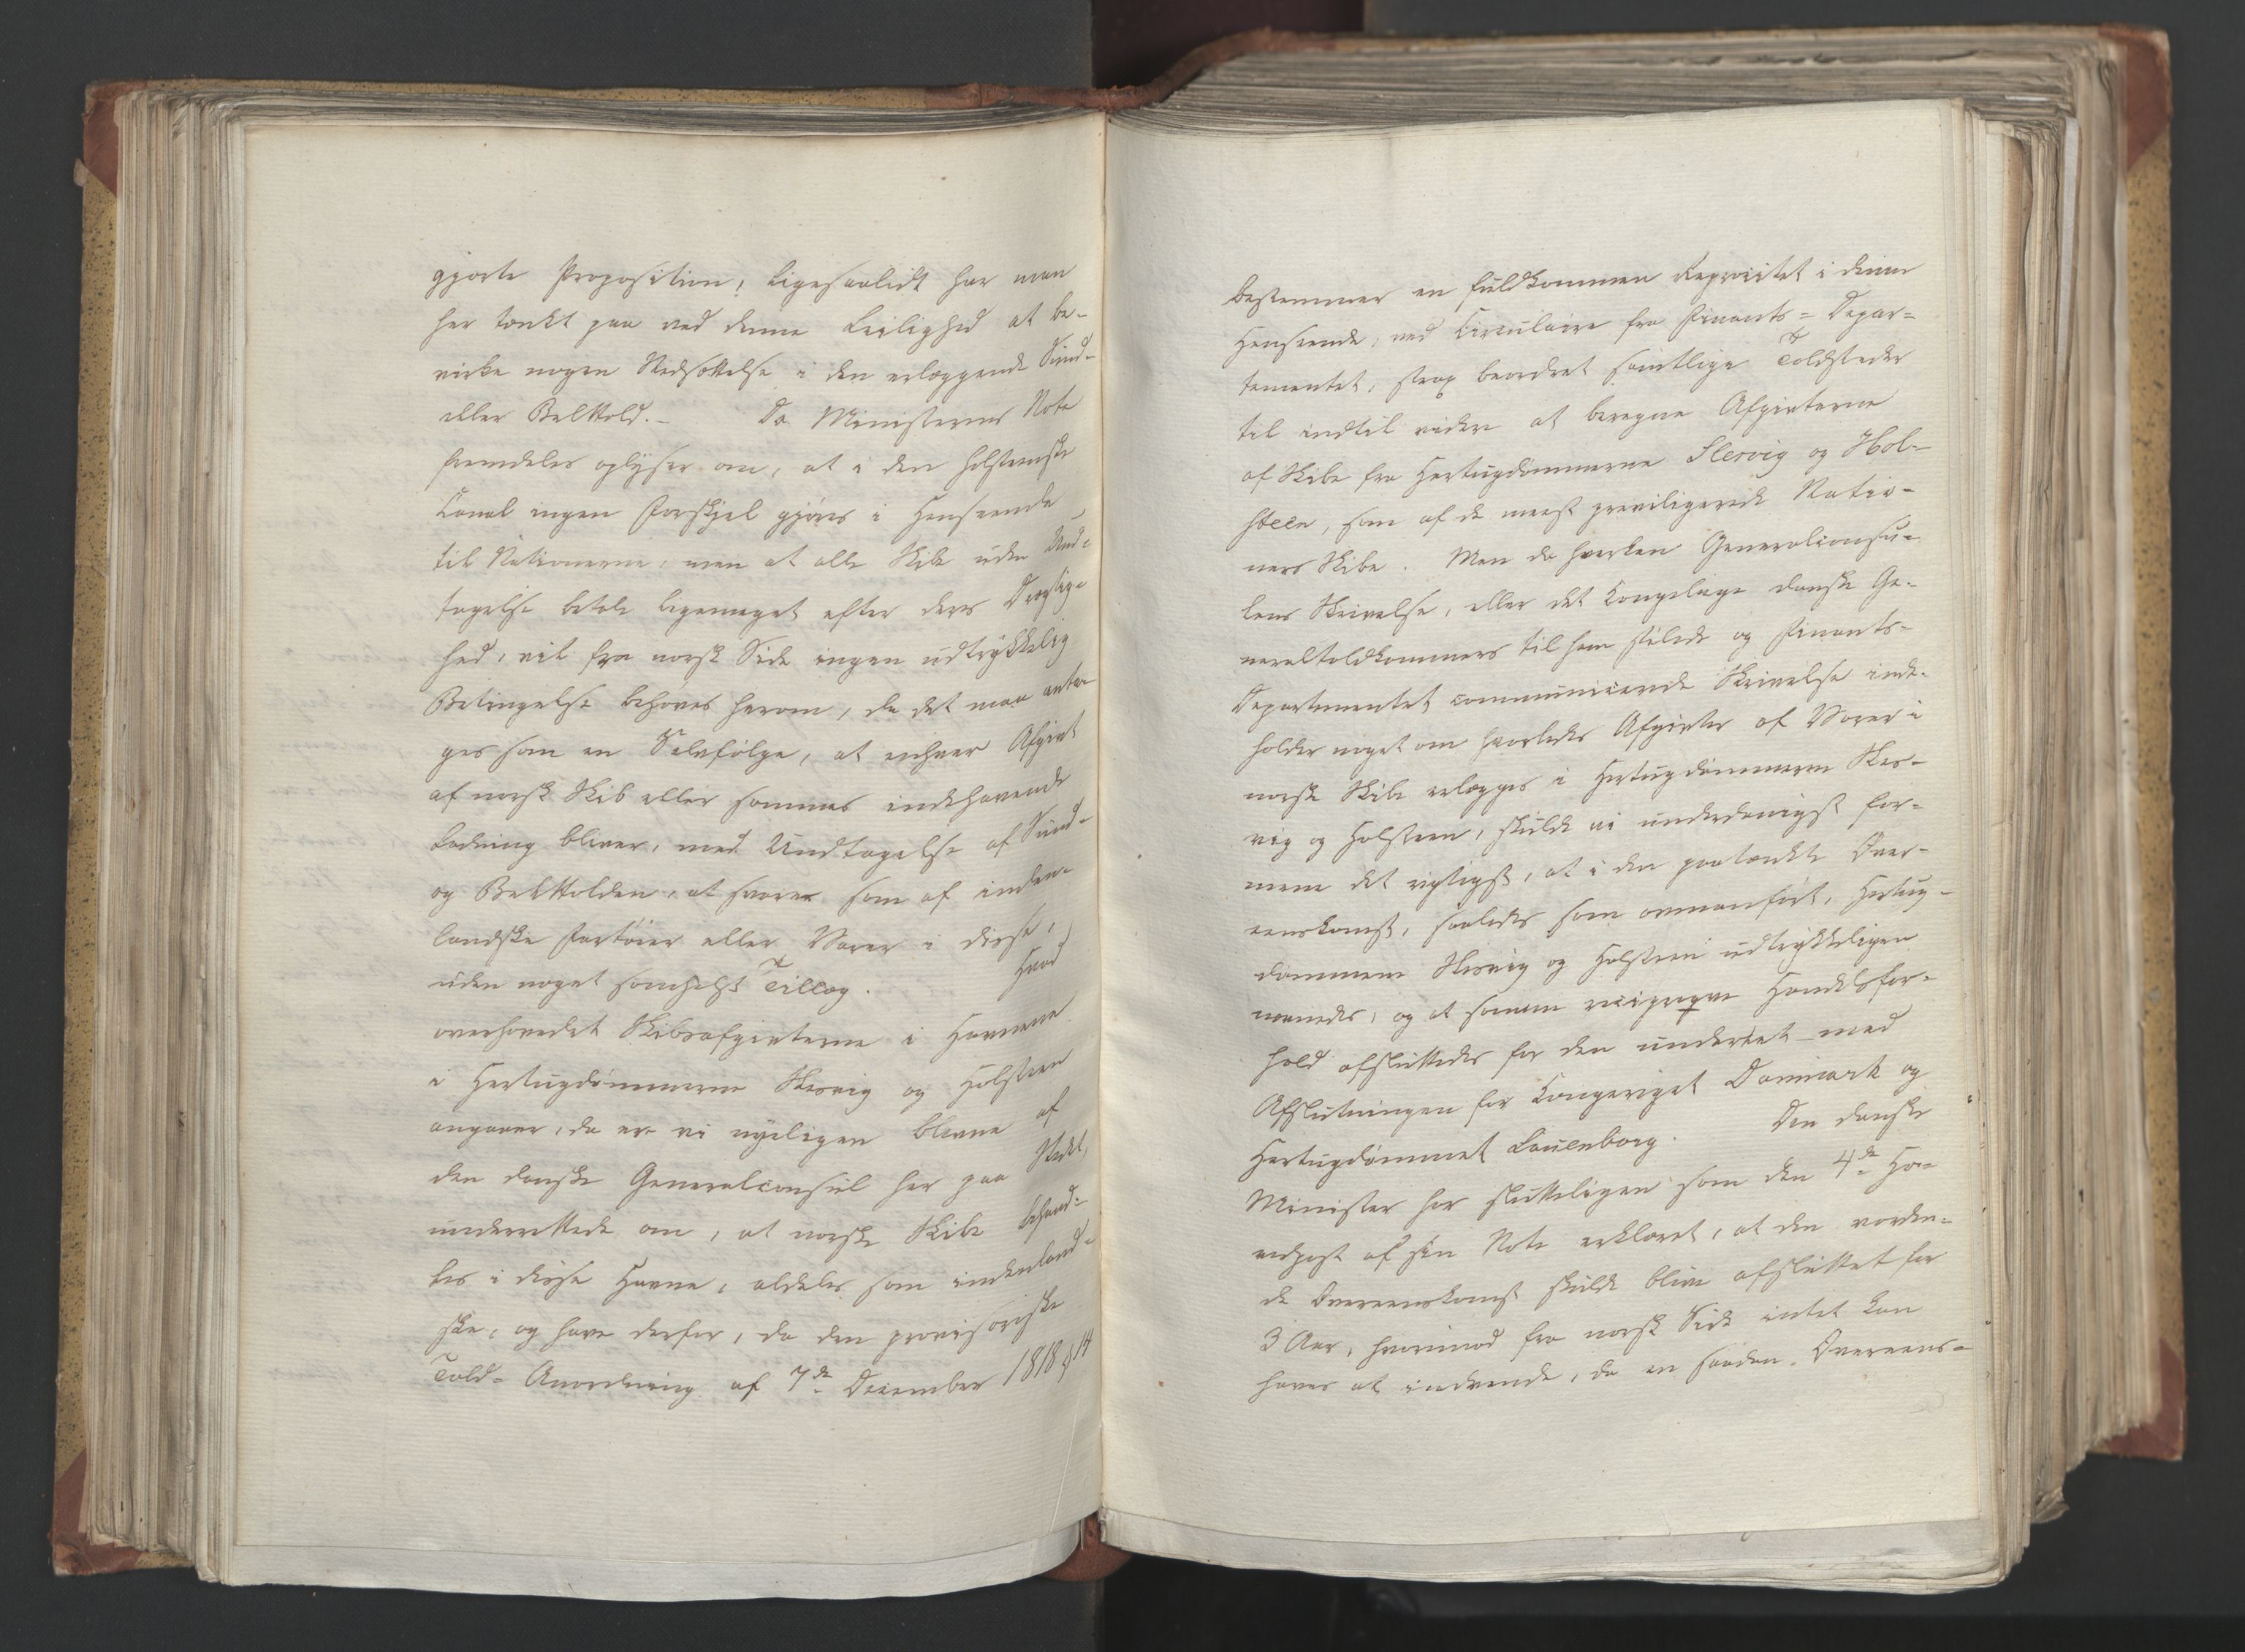 gjorte Proposition; ligesaalidt har man
her tænkt paa ved denne Leilighed at be-
virke nogen Nedsættelse i den erlæggende Sund-
eller BeltTold. - Da Ministerens Note
fremdeles oplyser om, at i den holsteenske
Canal ingen Forskjel gjøres i Henseende
til Nationerne, men at alle Skibe uden Und-
tagelse betale ligemeget efter deres Drægtig-
hed, vil fra norsk Side ingen udtrykkelig
Betingelse behøves herom, da det maa anta-
ges som en Selvfølge, at enhver Afgivt
af norsk Skib eller sammes indehavende
Ladning bliver, med Undtagelse af Sund-
og BeltTolden, at svare som af inden-
landske Fartøier eller Varer i disse,
uden noget somhelst Tillæg. Hvad
overhovedet Skibsafgivterne i Havnene
i Hertugdømmerne Slesvig og Holsteen
angaaer, da ere vi nyeligen blevne af
den danske Generalconsul her paa Stedet,
underrettede om, at norske Skibe behand-
les i disse Havne, aldeles som indenland-
ske, og have derfor, da den provisoriske
Told-Anordning af 7de December 1818 § 14
bestemmer en fuldkommen Reprocitet i denne
Henseende, ved Circulaire fra Finants-Depar-
tementet, strax beordret samtlige Toldsteder
til indtil videre at beregne Afgivterne
af Skibe fra Hertugdømmerne Slesvig og Hol-
steen, som af de meest previligerede Natio-
ners Skibe. Men da hverken Generalconsu-
lens Skrivelse, eller det Kongelige danske Ge-
neraltoldkammers til ham stilede og Finants-
Departementet communicerede Skrivelse inde-
holder noget om hvorledes Afgivter af Varer i
norske Skibe erlægges i Hertugdømmerne Sles-
vig og Holsteen, skulde vi underdanigst for-
mene det rigtigst, at i den paatænkte Over-
eenskomst, saaledes som ommanført, Hertug-
dømmene Slesvig og Holsteen udtrykkeligen
nævnedes, og at samme reciproqve Handelsfor-
hold afsluttedes for den under eet med
Afslutningen for Kongeriget Danmark og
Hertugdømmet Lauenborg. Den danske
Minister har slutteligen som den 4de Ho-
vedpost af sin Note erklæret, at den vorden-
de Overeenskomst skulde blive afsluttet for
3 Aar, hvorimod fra norsk Side intet kan
haves at indvende, da en saadan Overeens-